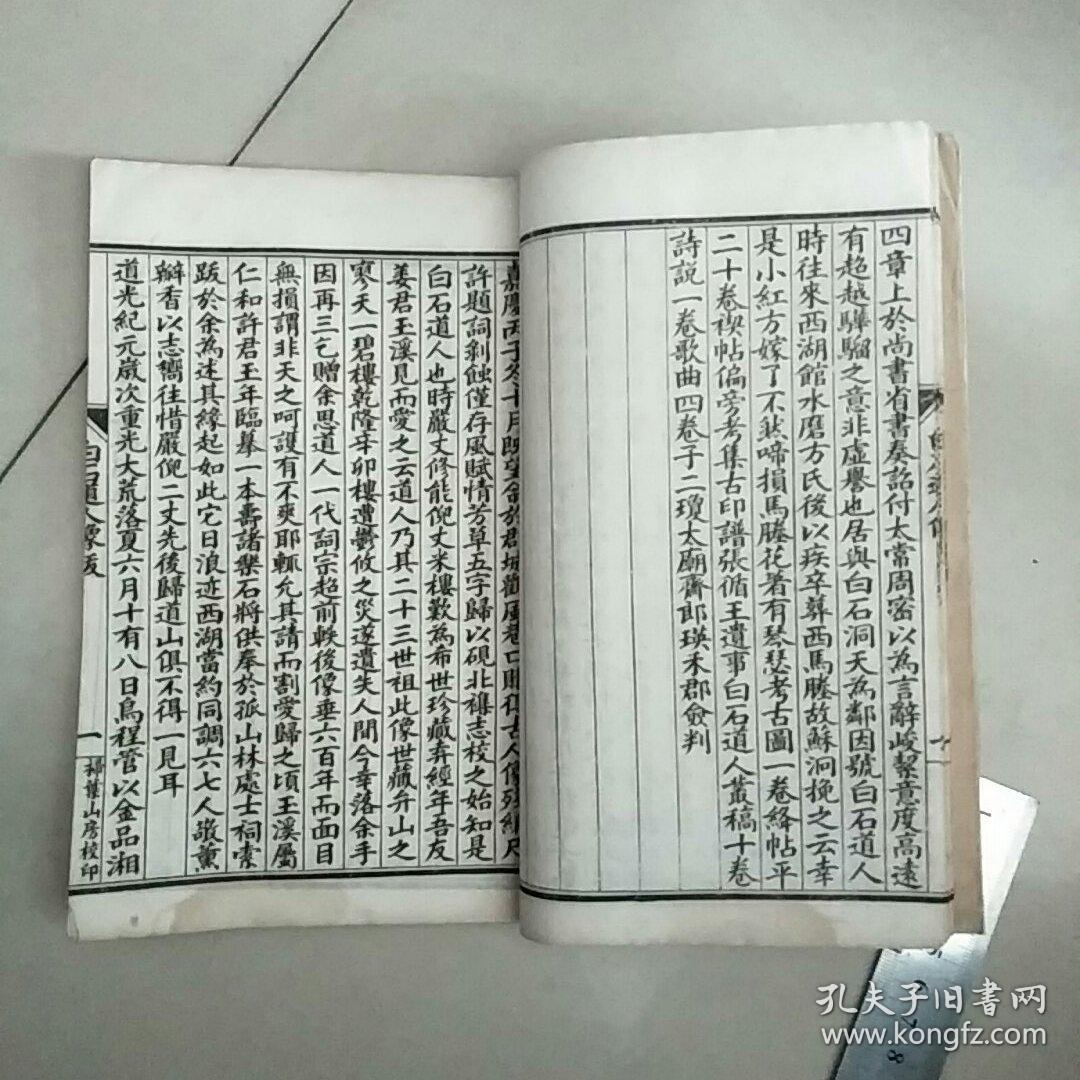 四章上於尚書省書奏詔付太常周密以為言辭峻潔意度高遠
有超越驊騮之意非虛譽也居與白石洞天為鄰因號白石道人
時往來西湖館水磨方氏後以疾卒葬西馬塍故蘇泂挽之云幸
是小紅方嫁了不然啼損馬塍花著有琴瑟考古圖一卷絳帖平
二十卷禊帖偏旁考集古印譜張循王遺事白石道人叢稿十卷
詩說一卷歌曲四卷子二瓊太廟齋郎瑛禾郡僉判
嘉慶丙子冬十月既望余於郡城觀風巷口購得古人像殘絹尺
許題詞剝蝕僅存風賦情芳草五字歸以硯北襍志校之始知是
白石道人也時嚴丈修能倪丈米樓歎為希世珍藏弆經年吾友
姜君玉溪見而愛之云道人乃其二十三世祖此像世藏弁山之
寒天一碧樓乾隆辛卯樓遭鬱攸之災遂遺失人間今幸落余手
因再三乞贈余思道人一代詞宗超前軼後像垂六百年而面目
無損謂非天之呵護有不爽耶輒允其請而割愛歸之頃玉溪屬
仁和許君玉年臨摹一本壽諸樂石將供奉於孤山林處士祠索
跋於余為述其緣起如此它日浪迹西湖當約同調六七人敬熏
瓣香以志嚮往惜嚴倪二丈先後歸道山俱不得一見耳
道光紀元歲次重光大荒落夏六月十有八日烏程管以金品湘
白石道人像跋
一
掃葉山房校印
孔夫子旧书网
www.kongfz.com
7
8